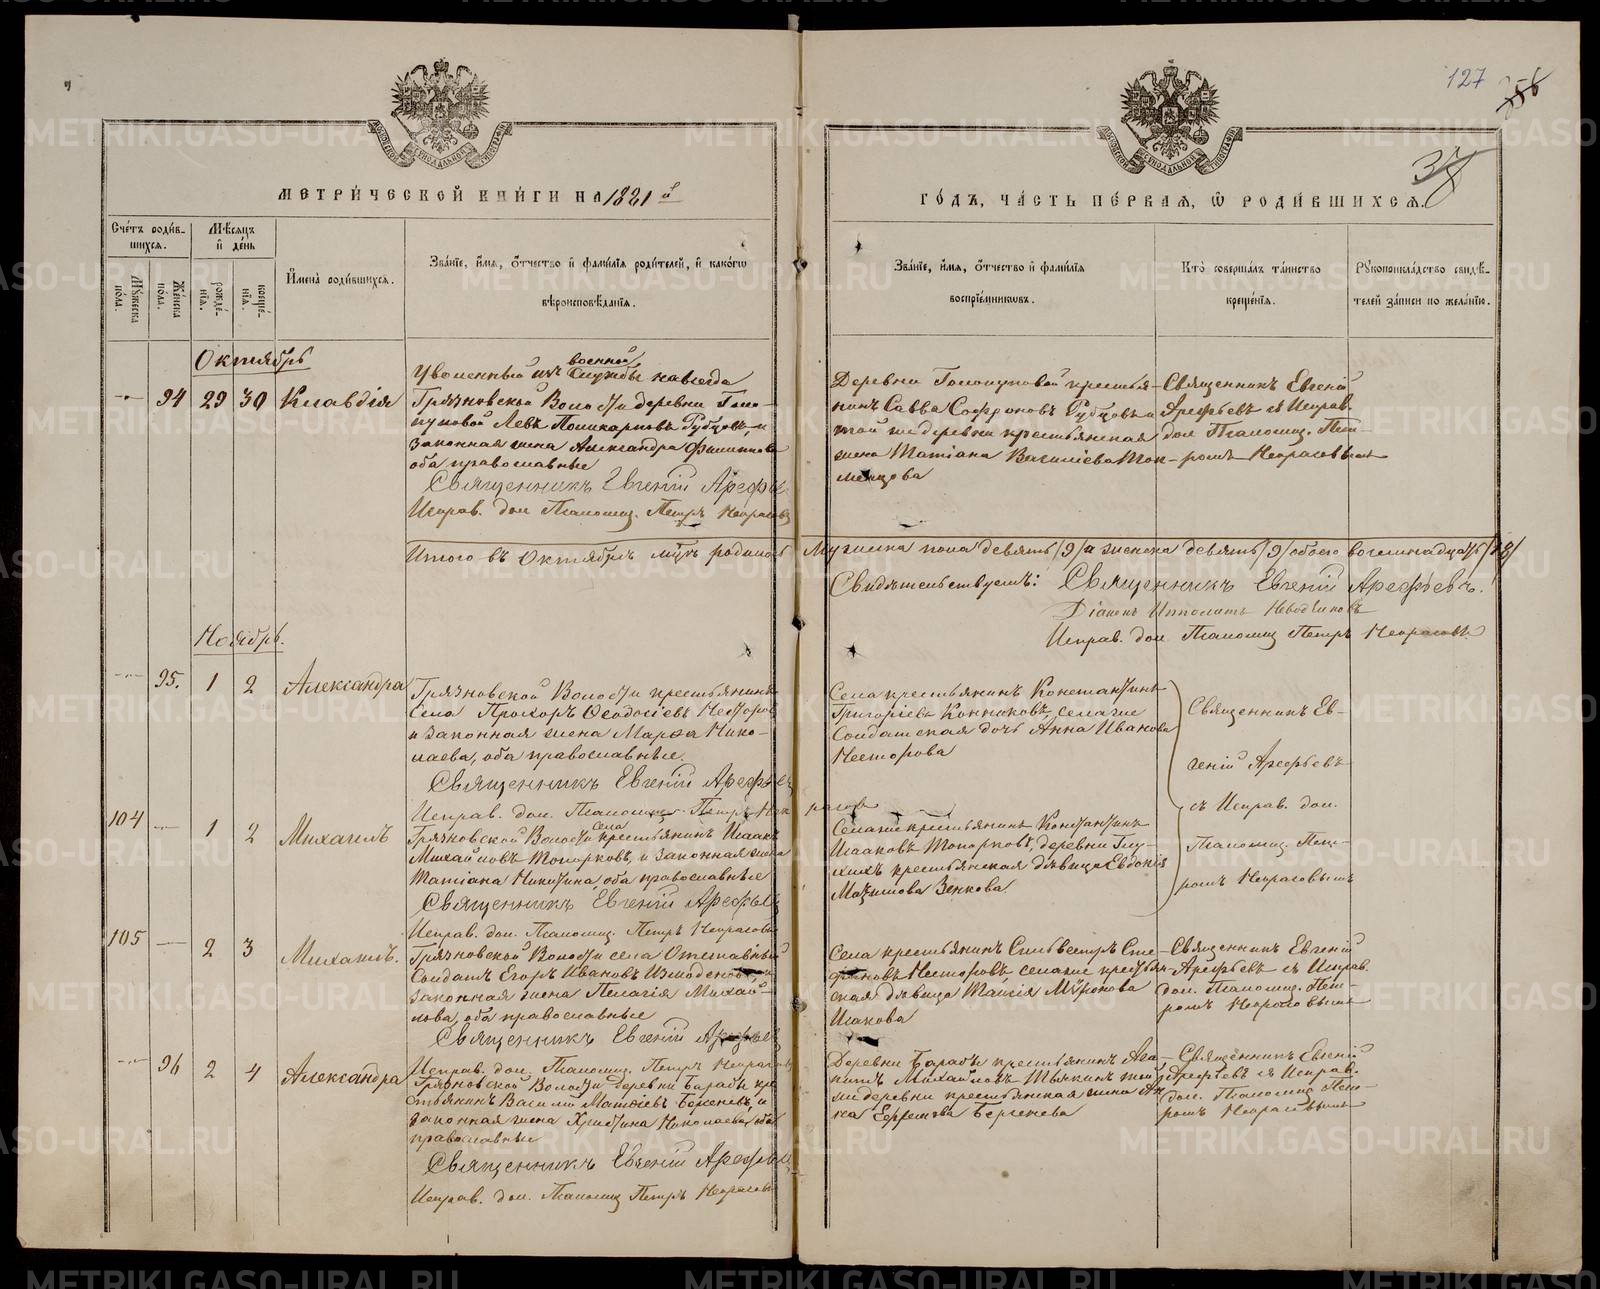 127
358
37
МЕТРИЧЕСКОЙ КНИГИ НА 1881 й
ГОДЪ, ЧАСТЬ ПЕРВАЯ, Ѡ РОДИВШИХСЯ.
Счетъ родив-
шихся.
Мѣсяцъ
и день
Мужеска
пола.
Женска
пола.
рожде-
нія.
креще-
нія.
Имена родившихся.
Званіе, имя, отчество и фамилія родителей, и какогѡ
вѣроисповѣданія.
Званіе, имя, отчество и фамилія
воспріемникѡвъ.
Кто совершалъ таинство
крещенія.
Рукоприкладство свидѣ-
телей записи по желанію.
Октябрь
94 29 30 Клавдія
Уволенный изъ военной службы навсегда
Грязновской Волости деревни Голо-
пуповой Левъ Поликарповъ Рубцовъ, и
законная жена Александра Филиппова
оба православные
Священникъ Евгеній Арефьевъ
Исправ. дол. Псаломщ. Петръ Некрасовъ
Деревни Голопуповой крестья-
нинъ Савва Софроновъ Рубцовъ и
той же деревни крестьянская
жена Татіана Василіева
Священникъ Евгеній
Арефьевъ съ Исправ.
дол. Псаломщ. Пет-
ромъ Некрасовымъ
Итого въ Октябрѣ мцѣ родилось Мужеска пола девять /9/ и женска девять /9/ обоего восемнадцать /18/
Свидѣтельствуемъ: Священникъ Евгеній Арефьевъ.
Діаконъ Ипполитъ
Исправ. дол. Псаломщ Петръ Некрасовъ
Ноябрь.
95. 1 2 Александра
Грязновской Волости крестьянинъ
села Прохоръ Ѳеодосіевъ Несторовъ
и законная жена Марѳа Нико-
лаева, оба православные.
Священникъ Евгеній Арефьевъ
Исправ. дол. Псаломщ. Петръ Некрасовъ
Села крестьянинъ Константинъ
Григоріевъ Конюховъ, села же
Солдатская дочь Анна Иванова
Несторова
Священникъ Ев-
геній Арефьевъ
съ Исправ. дол.
Псаломщ. Пет-
ромъ Некрасовымъ
104 1 2 Михаилъ
Грязновской Волости села крестьянинъ Исаакъ
Михайловъ Топорковъ, и законная жена
Татіана Никитина, оба православные
Священникъ Евгеній Арефьевъ
Исправ. дол. Псаломщ. Петръ Некрасовъ
Села же крестьянинъ Константинъ
Исааковъ Топорковъ, деревни Глу-
хихъ крестьянская дѣвица Евдокія
Зенкова
105 2 3 Михаилъ.
Грязновской Волости села Отставный
Солдатъ Егоръ Ивановъ и
законная жена Пелагія Михай-
лова, оба православные
Священникъ Евгеній Арефьевъ
Исправ. дол. Псаломщ. Петръ Некрасовъ
Села крестьянинъ Сильвестръ Сте-
фановъ Несторовъ села же крестьян-
ская дѣвица Таисія Миронова
Исакова
Священникъ Евгеній
Арефьевъ съ Исправ.
дол. Псаломщ. Пет-
ромъ Некрасовымъ
96 2 4 Александра
Грязновской Волости деревни Бараби кре
стьянинъ Василій Матѳіевъ Бергеневъ, и
законная жена Христина Николаева, оба
православные
Священникъ Евгеній Арефьевъ
Исправ. дол. Псаломщ Петръ Некрасовъ
Деревни Бараби крестьянинъ
Михайловъ той
же деревни крестьянская жена Ан-
на Ефремова Бергенева
Священникъ Евгеній
Арефьевъ съ Исправ.
дол. Псаломщ Пет-
ромъ Некрасовымъ
METRIKI.GASO-URAL.RU